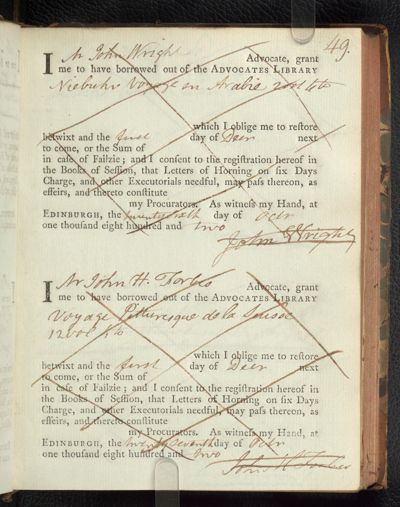 49.
I Mr John Wright Advocate, grant
me to have borrowed out of the ADVOCATES LIBRARY
Niebuhr Voyage en Arabie 2 vol 4to
which I oblige me to reſtore
betwixt and the first day of Decr next
to come, or the Sum of
in caſe of Failzie; and I conſent to the regiſtration hereof in
the Books of Seſſion, that Letters of Horning on ſix Days
Charge, and other Executorials needful, may paſs thereon, as
effeirs, and thereto conſtitute
my Procurators. As witneſs my Hand, at
EDINBURGH, the twenty sixth day of Octr
one thouſand eight hundred and two
John Wright
I Mr John H. Forbes Advocate, grant
me to have borrowed out of the ADVOCATES LIBRARY
Voyage Pitturesque de la Suisse
12 vol 4to
which I oblige me to reſtore
betwixt and the first day of Decr next
to come, or the Sum of
in caſe of Failzie; and I conſent to the regiſtration hereof in
the Books of Seſſion, that Letters of Horning on ſix Days
Charge, and other Executorials needful, may paſs thereon, as
effeirs, and thereto conſtitute
my Procurators. As witneſs my Hand, at
EDINBURGH, the twenty seventh day of Octr
one thouſand eight hundred and two
John H. Forbes